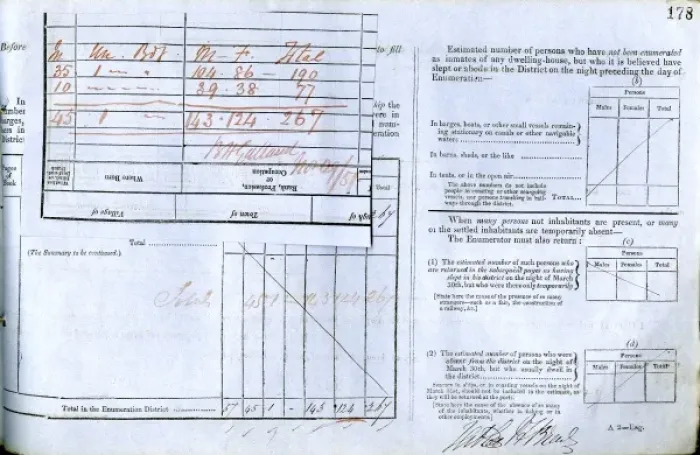 178
Before
to fill
In Un. Bdg M - F. Total
35 1 - " 104 . 86 - 190
10 - - - - 39 . 38 . 77
45 1 " - 143 . 124 . 267
Whether Blind, or Deaf-and-Dumb
Where Born
Rank, Profession, or Occupation
Village of
Town of
In
number
arges,
district
ship the
were in
num-
eration
Total
267
Total
(The Summary to be continued.)
Total 45 1 - 143 124 267
Total in the Enumeration District 57 45 1 - 143 . 124 . 267
Estimated number of persons who have not been enumerated
as inmates of any dwelling-house, but who it is believed have
slept or abode in the District on the night preceding the day of
Enumeration—
(b)
Persons
Males Females Total
In barges, boats, or other small vessels remain-
ing stationary on canals or other navigable
waters
In barns, sheds, or the like
In tents, or in the open air
The above numbers do not include
people in coasting or other seagoing
vessels, nor persons travelling in rail-
ways through the district.
TOTAL
When many persons not inhabitants are present, or many
of the settled inhabitants are temporarily absent—
The Enumerator must also return:
(c)
Persons
Males Females Total
(1) The estimated number of such persons who
are returned in the subsequent pages as having
slept in his district on the night of March
30th, but who were there only temporarily
[State here the cause of the presence of so many
strangers—such as a fair, the construction of
a railway, &c.]
(d)
Persons
Males Females Total
(2) The estimated number of persons who were
absent from the district on the night of
March 30th, but who usually dwell in
the district
[State here the cause of the absence of so many
of the inhabitants, whether in fishing or in
other employments]
A 2—Eng.